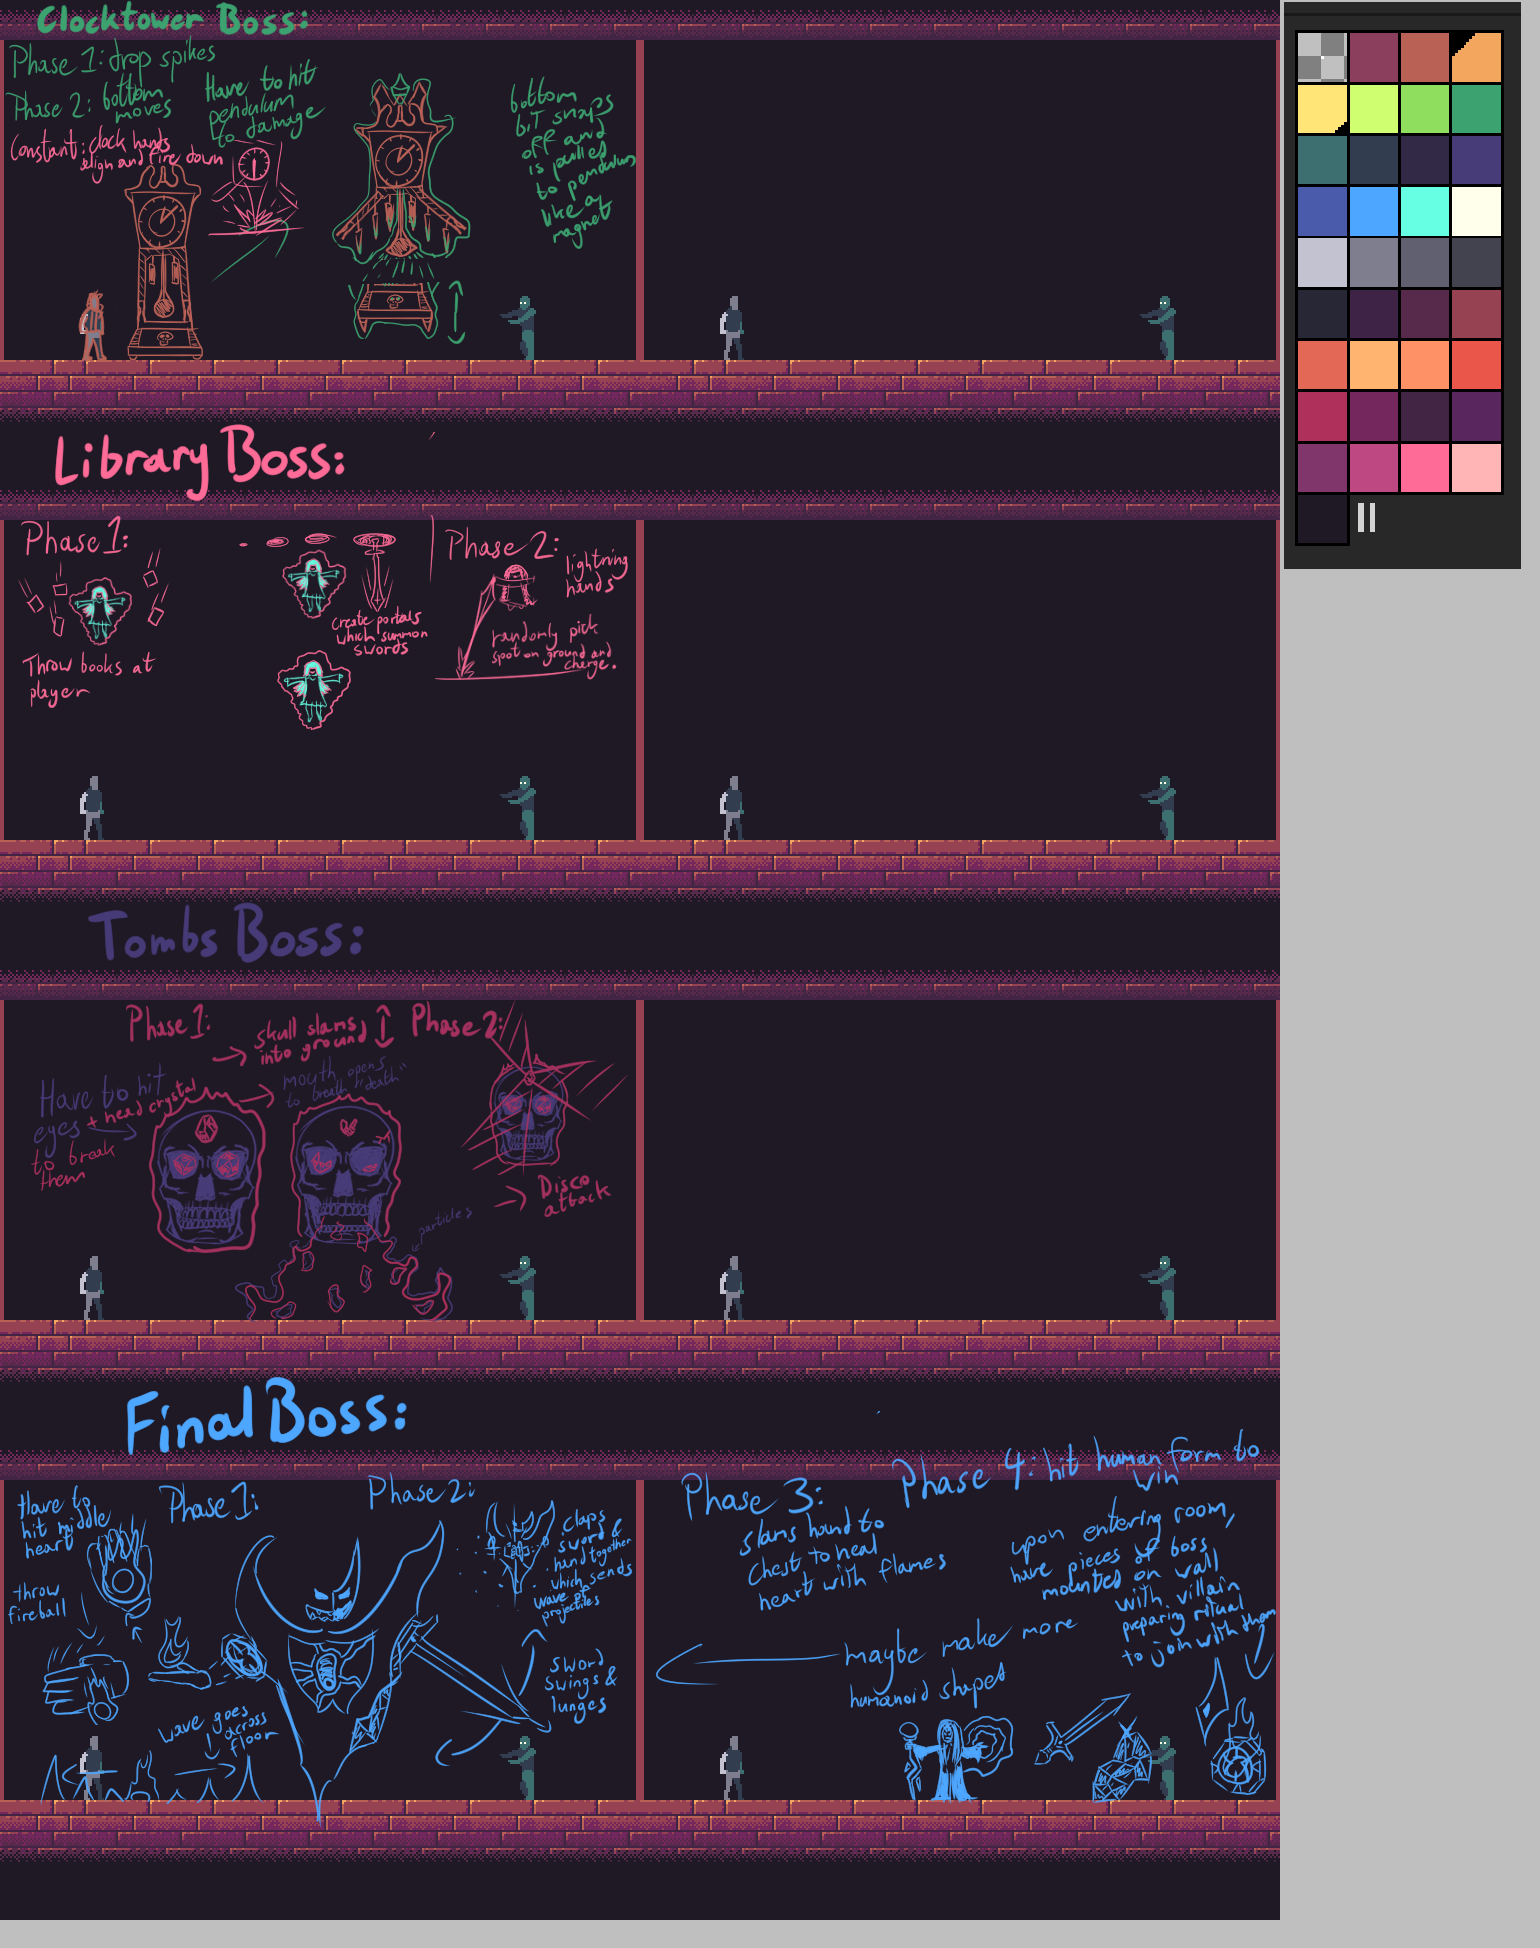 Clocktower Boss:
Phase 1: drop spikes
Phase 2: bottom
moves
Constant: clock hands
align and fire down
Have to hit
pendulum
to damage
bottom
bit snaps
off and
is pulled
to pendulum
like a
magnet
Library Boss:
Phase 1:
Throw books at
player
create portals
which summon
swords
Phase 2:
lightning
hands
randomly pick
spot on ground and
charge.
Tombs Boss:
Phase 1:
Have to hit
eyes + head crystal
to break
them
skull slams
into ground
mouth opens
to breath "death"
particles
Phase 2:
Disco
attack
Final Boss:
Phase 1:
Have to
hit middle
heart
throw
fireball
wave goes
across
floor
Phase 2:
claps
sword &
hand together
which sends
wave of
projectiles
sword
swings &
lunges
Phase 3:
slams hand to
chest to heal
heart with flames
maybe make more
humanoid shaped
Phase 4: hit human form to
win
upon entering room,
have pieces of boss
mounted on wall
with villain
preparing ritual
to join with them